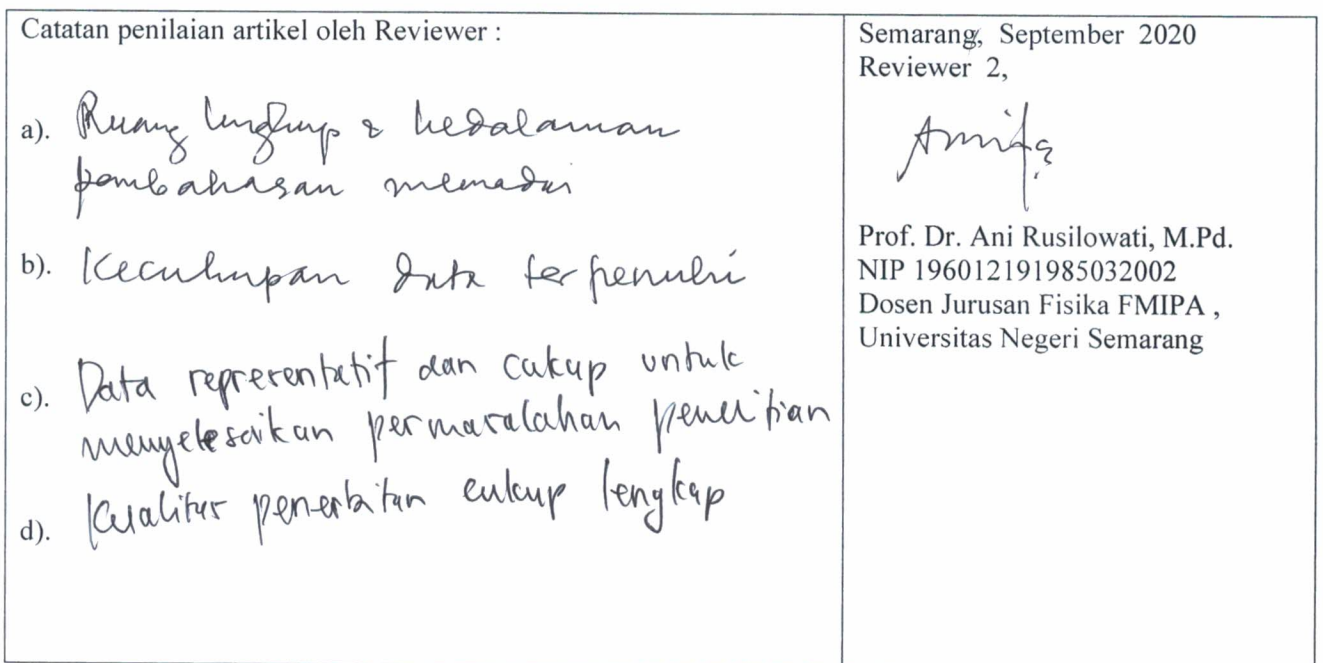 Catatan penilaian artikel oleh Reviewer :
a). Ruang lingkup & kedalaman
pembahasan memadai
b). Kecukupan data terpenuhi
c). Data representatif dan cukup untuk
menyelesaikan permasalahan penelitian
d). Kualitas penerbitan cukup lengkap
Semarang, September 2020
Reviewer 2,
Prof. Dr. Ani Rusilowati, M.Pd.
NIP 196012191985032002
Dosen Jurusan Fisika FMIPA ,
Universitas Negeri Semarang